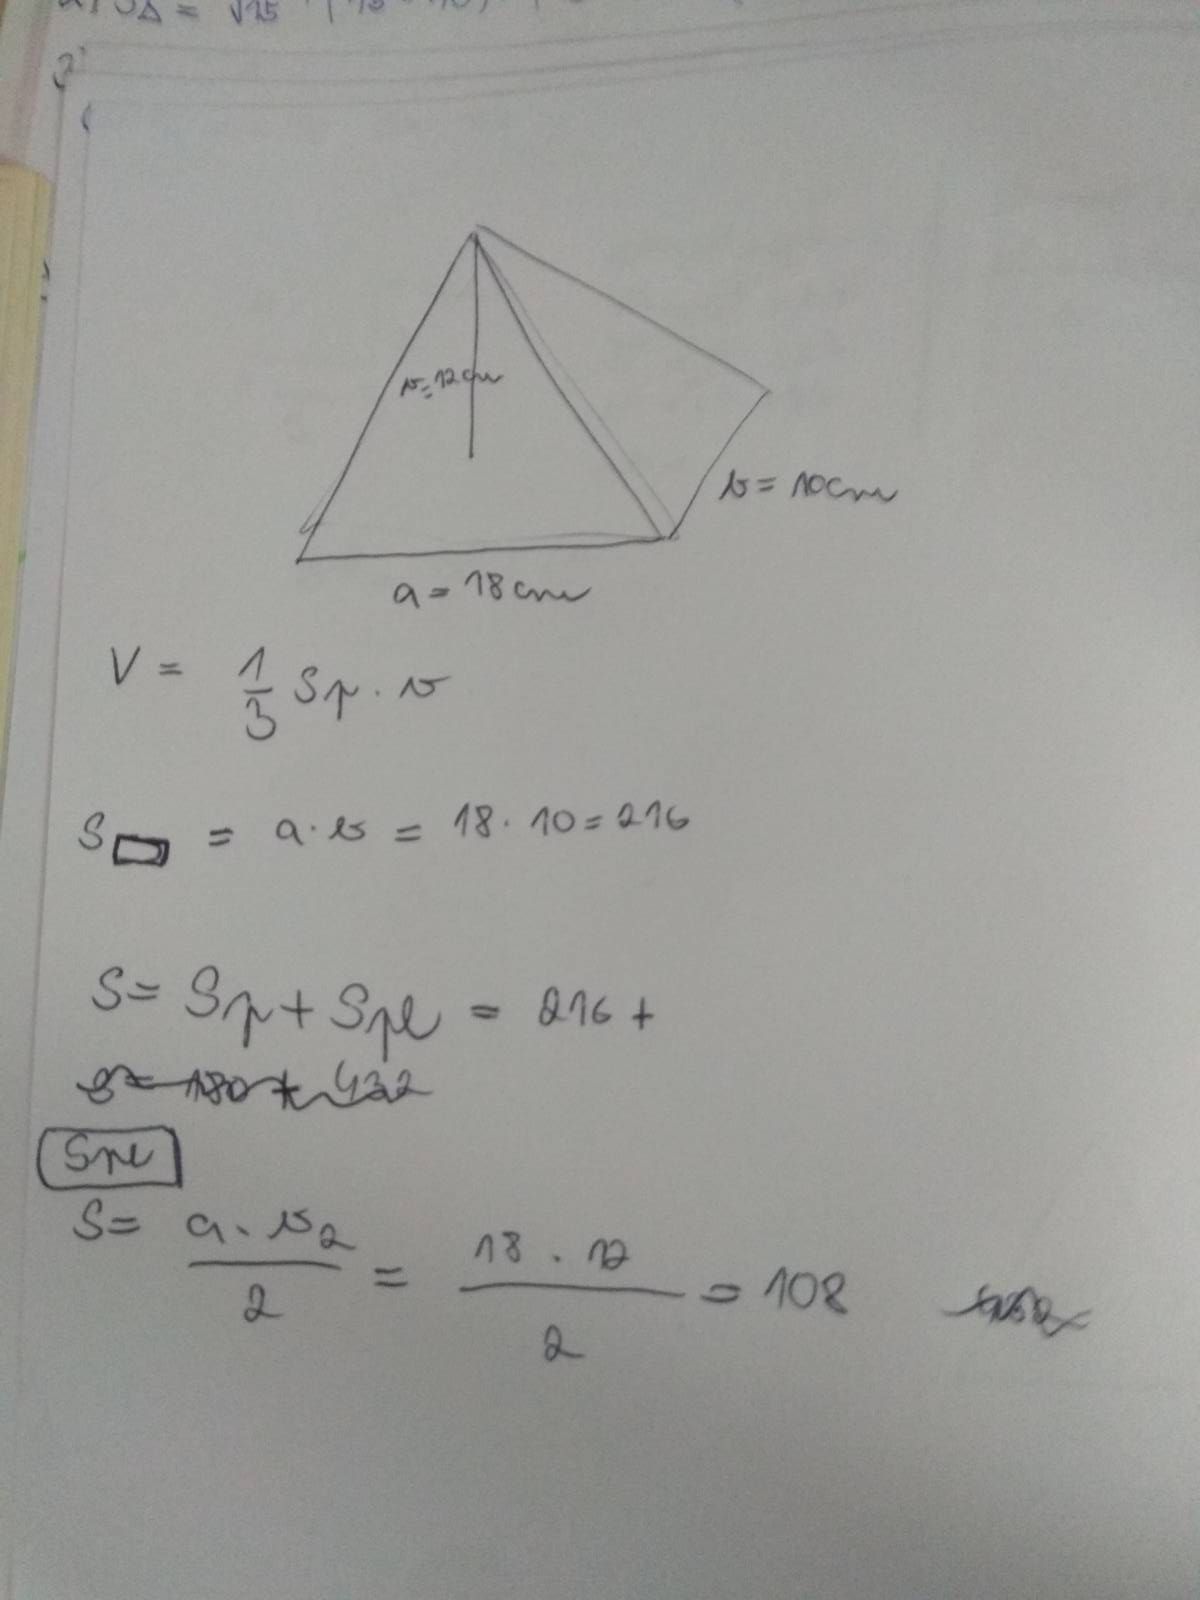 v=12cm
b=10cm
a=18cm
V = 1/3 Sp.v
S▭ = a.b = 18.10=216
S= Sp+Spl = 216+
S= 180+ 432
Spl
S= a.v2/2 = 18.12/2 = 108